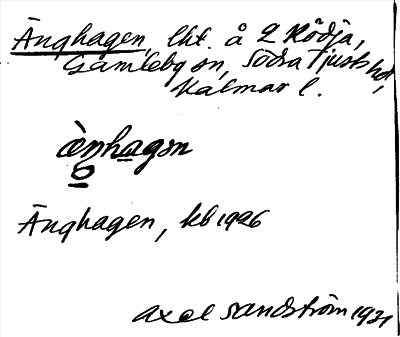 Änghagen, lht. å 2 Rödja,
Gamleby sn, Södra Tjusts hd,
Kalmar l.
ä̀nhagən
Änghagen, kb 1926
Axel Sandström 1931